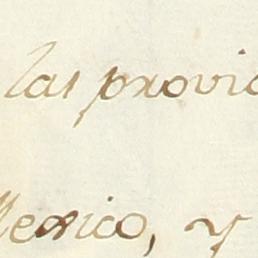 las provi
Mexico, y